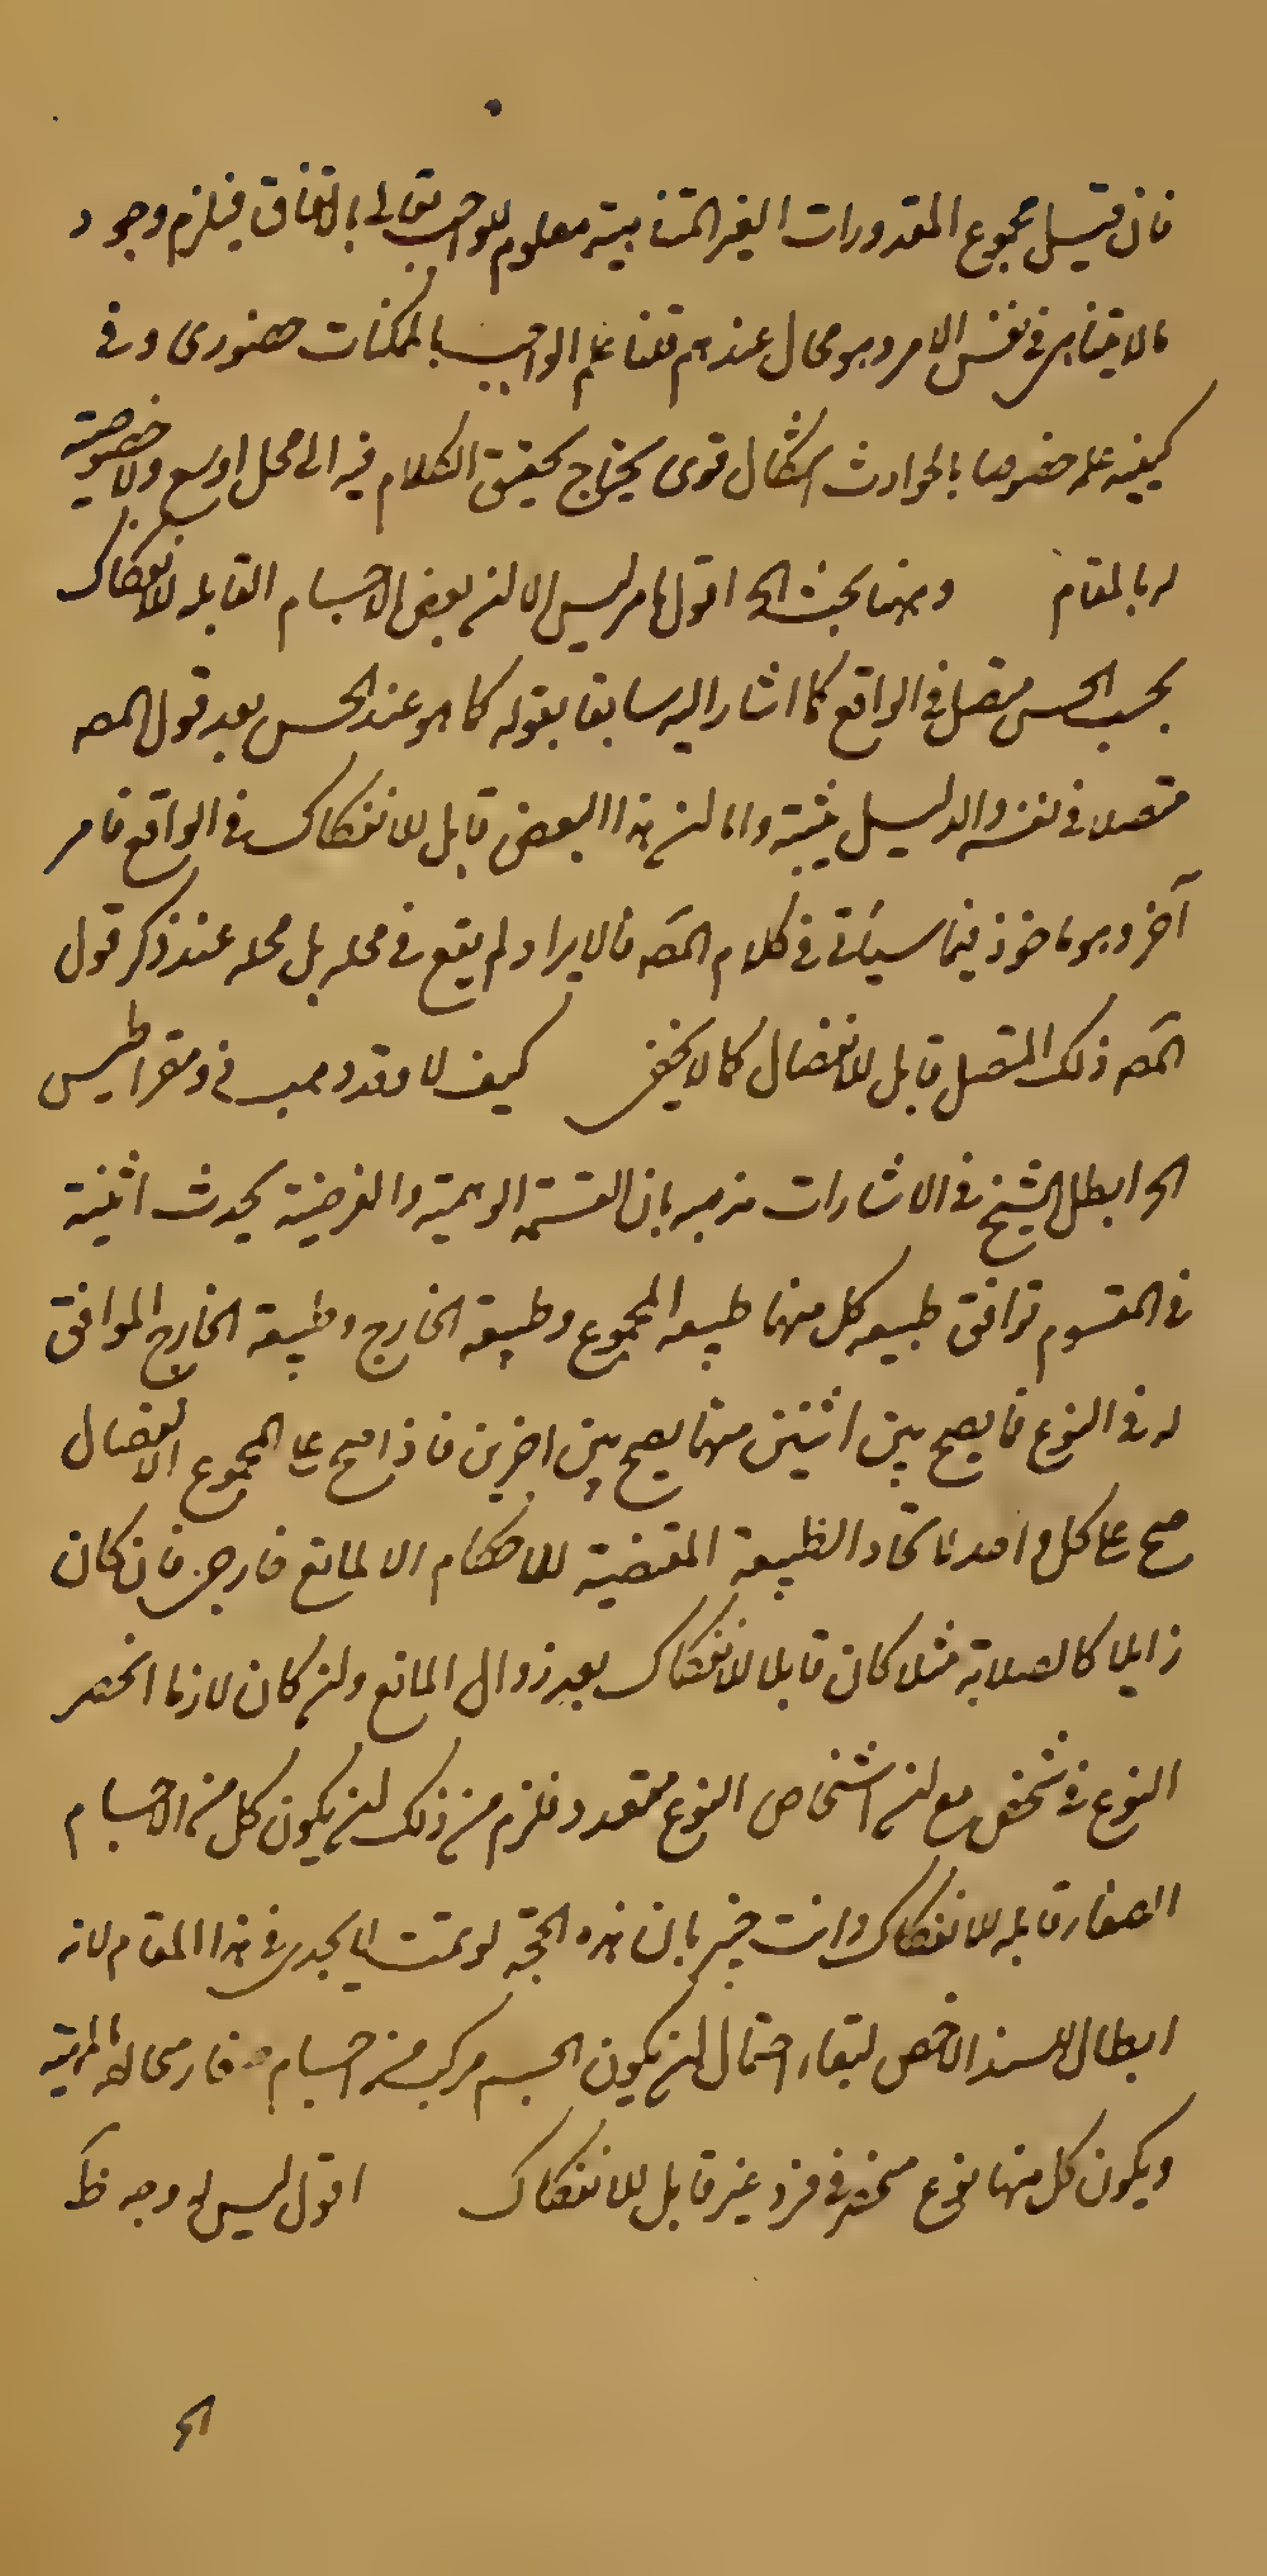 فان قيل مجموع المقدورات الغير المتناهية معلوم للواجب تعالى بالاتفاق فيلزم وجود
مالا يتناهى في نفس الامر وهو محال عندهم قلنا علم الواجب بالممكنات حضورى وفى
كيفية علمه خصوصا بالحوادث اشكال قوى يحتاج تحقيق الكلام فيه الى محل اوسع ولا خصوصية
له بالمقام وههنا بحث الخ اقول ما مر ليس الا ان بعض الاجسام القابلة للانفكاك
بحسب الحس متصل في الواقع كما اشار اليه سابقا بقوله كما هو عند الحس بعد قول المصـ
متصلا في نفسه والدليل يثبته واما ان هذا البعض قابل للانفكاك في الواقع فامر
آخر وهو ماخوذ فيما سيأتى في كلام المصـ فالايراد لم يقع في محله بل محله عند ذكر قول
المصـ ذلك المتصل قابل للانفصال كما لا يخفى كيف لا وقد ذهب ذيمقراطيس
الخ ابطل الشيخ في الاشارات مذهبه بان القسمة الوهمية والفرضية يحدث اثنينية
في المقسوم توافق طبيعه كل منهما طبيعه المجموع وطبيعة الخارج وطبيعة الخارج الموافق
له في النوع فما يصح بين اثنين منهما يصح بين اخرين فاذا صح على المجموع الانفصال
صح على كل واحد لاتحاد الطبيعة المقتضية للاحكام الا لمانع خارجى فان كان
زايلا كالصلابة مثلا كان قابلا للانفكاك بعد زوال المانع وان كان لازما انحصر
النوع في شخص مع ان اشخاص النوع متعدد فلزم من ذلك ان يكون كل من الاجسام
الصغار قابلة للانفكاك وانت خبير بان هذه الحجة لو تمت لا يجدى في هذا المقام لانه
ابطال للسند الاخص لبقاء احتمال ان يكون الجسم مركب من اجسام صغار متخالفة المهية
ويكون كل منها نوع منحصر في فرد غير قابل للانفكاك اقول ليس له وجه ظ
الخ